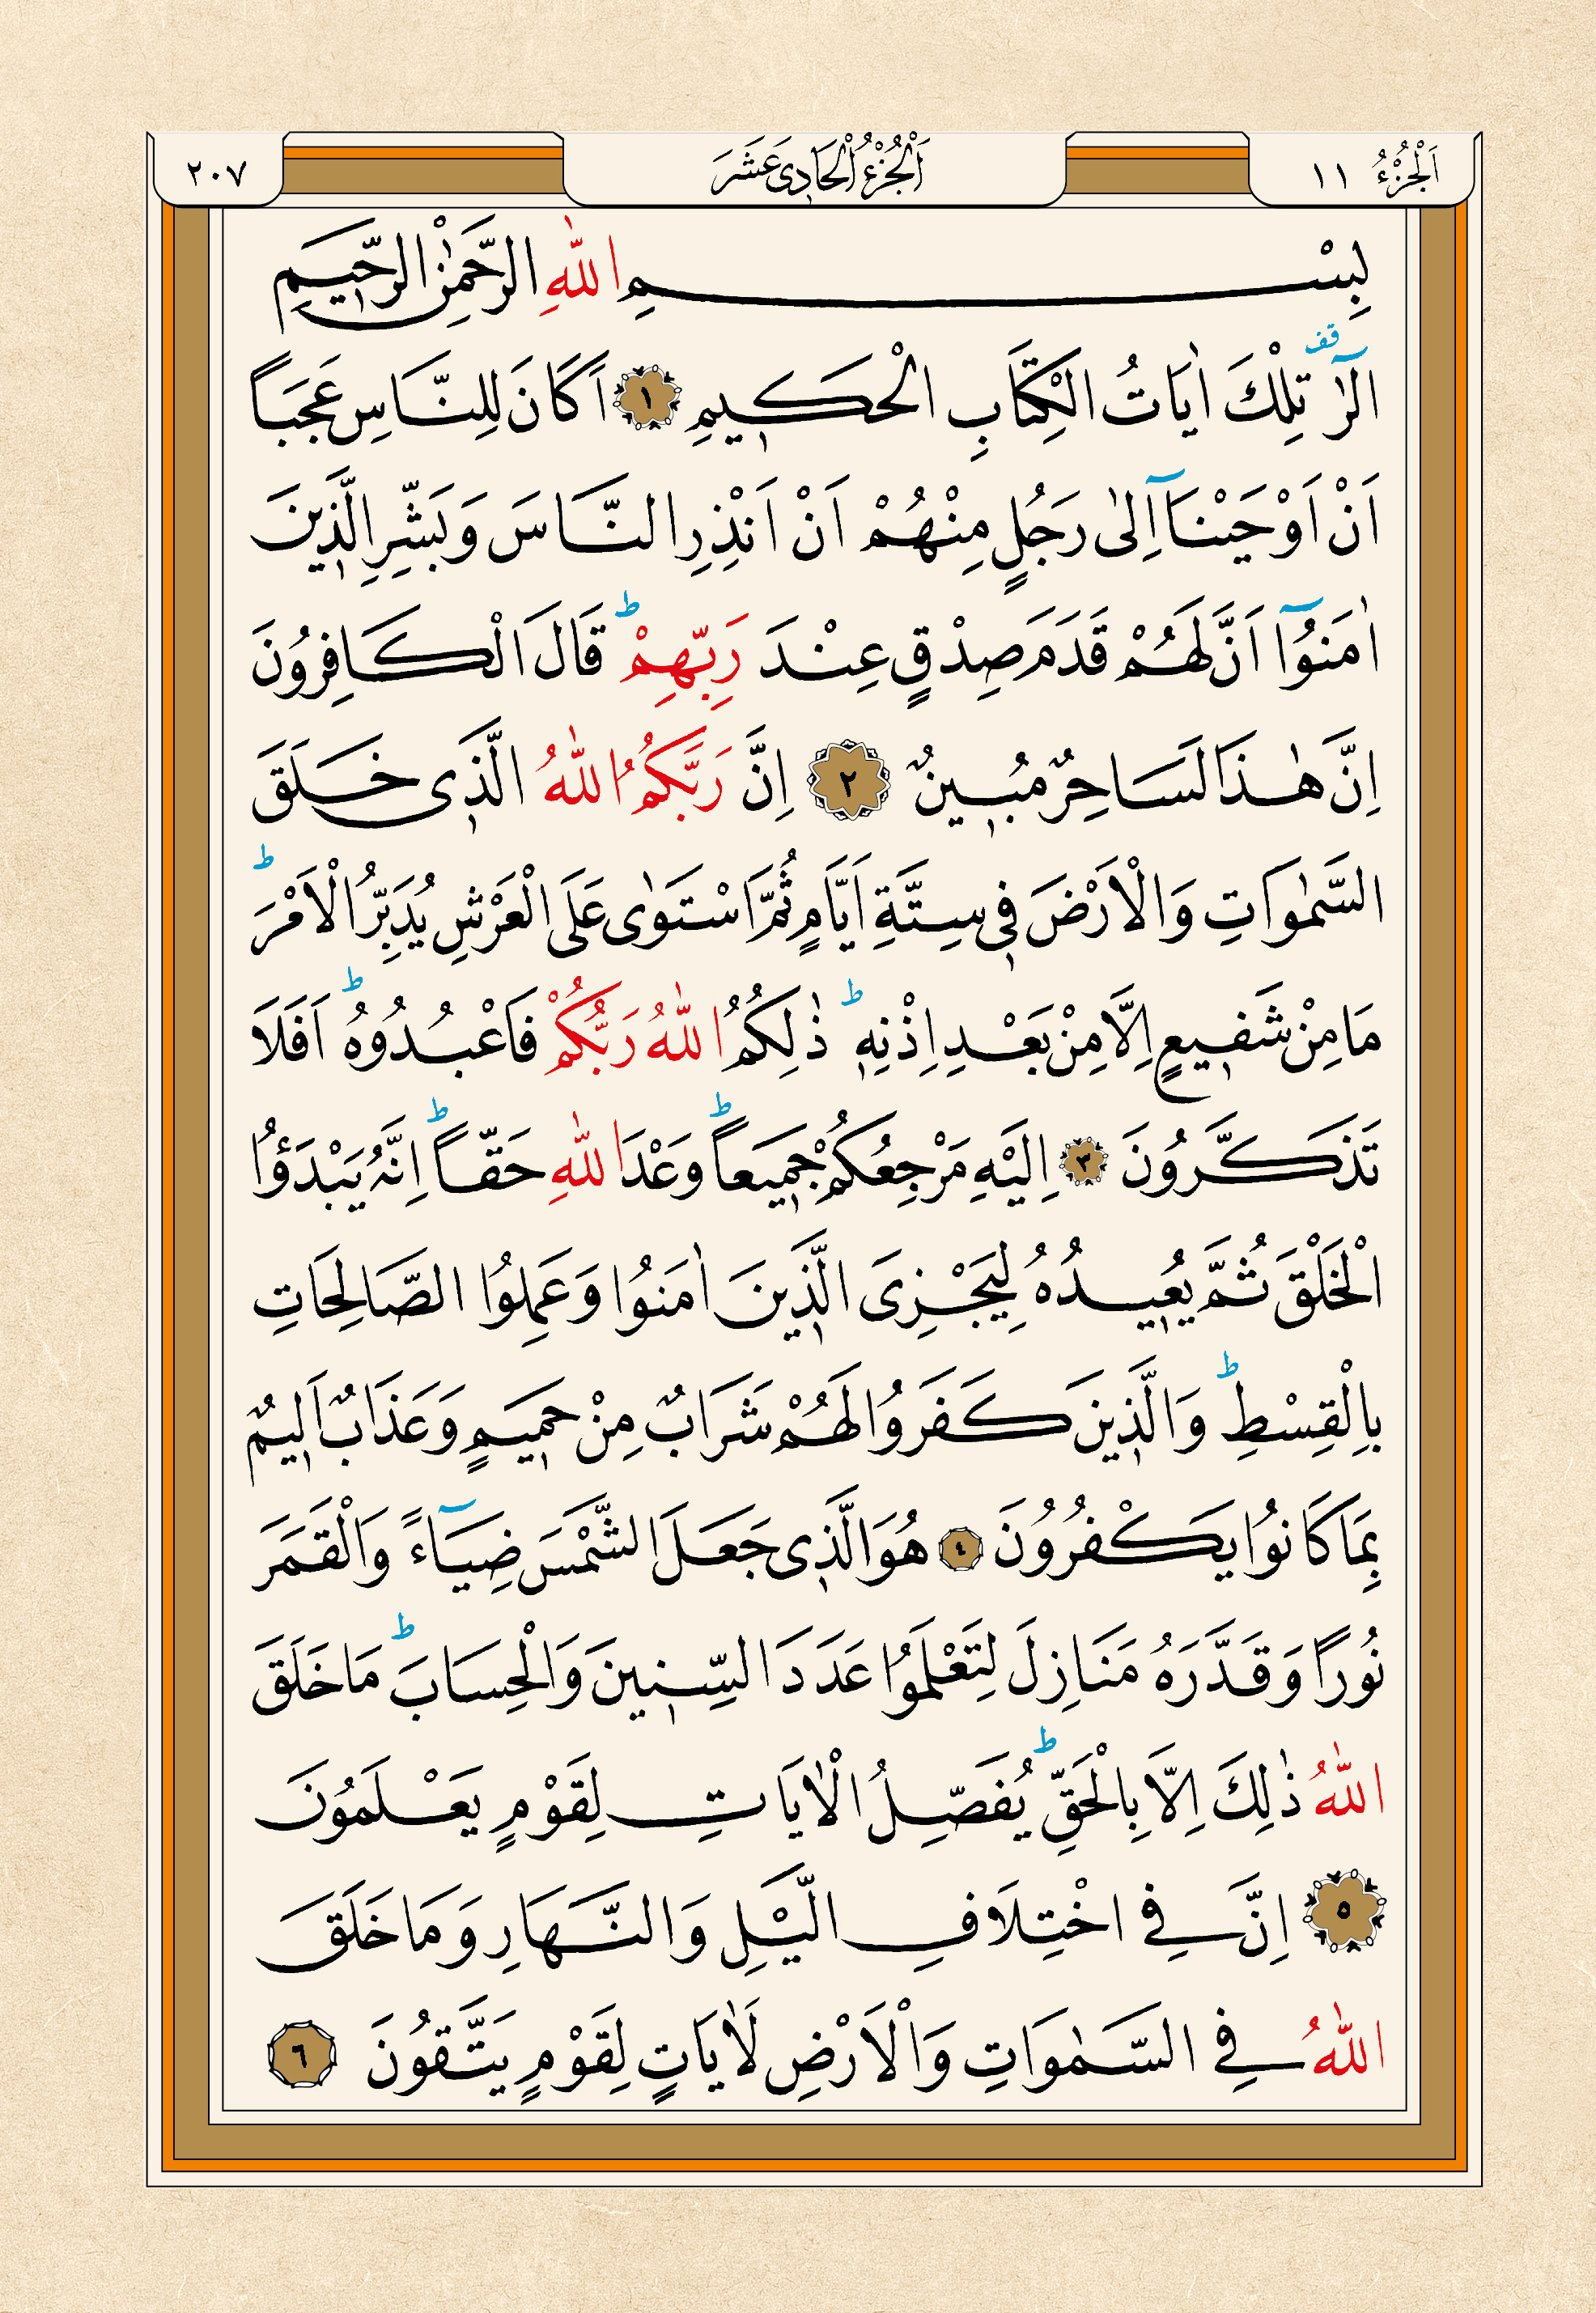 اَلْجُزْءُ ١١
اَلْجُزْءُ الْحَادِى عَشَرَ
٢٠٧
بِسْمِ اللّٰهِ الرَّحْمٰنِ الرَّحٖيمِ
الٓرٰ قف تِلْكَ اٰيَاتُ الْكِتَابِ الْحَكٖيمِ ١ اَكَانَ لِلنَّاسِ عَجَبًا
اَنْ اَوْحَيْنَٓا اِلٰى رَجُلٍ مِنْهُمْ اَنْ اَنْذِرِ النَّاسَ وَبَشِّرِ الَّذٖينَ
اٰمَنُٓوا اَنَّ لَهُمْ قَدَمَ صِدْقٍ عِنْدَ رَبِّهِمْ ط قَالَ الْكَافِرُونَ
اِنَّ هٰذَا لَسَاحِرٌ مُبٖينٌ ٢ اِنَّ رَبَّكُمُ اللّٰهُ الَّذٖى خَلَقَ
السَّمٰوَاتِ وَالْاَرْضَ فٖى سِتَّةِ اَيَّامٍ ثُمَّ اسْتَوٰى عَلَى الْعَرْشِ يُدَبِّرُ الْاَمْرَ ط
مَا مِنْ شَفٖيعٍ اِلَّا مِنْ بَعْدِ اِذْنِهٖ ط ذٰلِكُمُ اللّٰهُ رَبُّكُمْ فَاعْبُدُوهُ ط اَفَلَا
تَذَكَّرُونَ ٣ اِلَيْهِ مَرْجِعُكُمْ جَمٖيعاً ط وَعْدَ اللّٰهِ حَقّاً ط اِنَّهُ يَبْدَؤُا
الْخَلْقَ ثُمَّ يُعٖيدُهُ لِيَجْزِىَ الَّذٖينَ اٰمَنُوا وَعَمِلُوا الصَّالِحَاتِ
بِالْقِسْطِ ط وَالَّذٖينَ كَفَرُوا لَهُمْ شَرَابٌ مِنْ حَمٖيمٍ وَعَذَابٌ اَلٖيمٌ
بِمَا كَانُوا يَكْفُرُونَ ٤ هُوَ الَّذٖى جَعَلَ الشَّمْسَ ضِيَٓاءً وَالْقَمَرَ
نُورًا وَقَدَّرَهُ مَنَازِلَ لِتَعْلَمُوا عَدَدَ السِّنٖينَ وَالْحِسَابَ ط مَا خَلَقَ
اللّٰهُ ذٰلِكَ اِلَّا بِالْحَقِّ ط يُفَصِّلُ الْاٰيَاتِ لِقَوْمٍ يَعْلَمُونَ
٥ اِنَّ فِى اخْتِلَافِ الَّيْلِ وَالنَّهَارِ وَمَا خَلَقَ
اللّٰهُ فِى السَّمٰوَاتِ وَالْاَرْضِ لَاٰيَاتٍ لِقَوْمٍ يَتَّقُونَ ٦